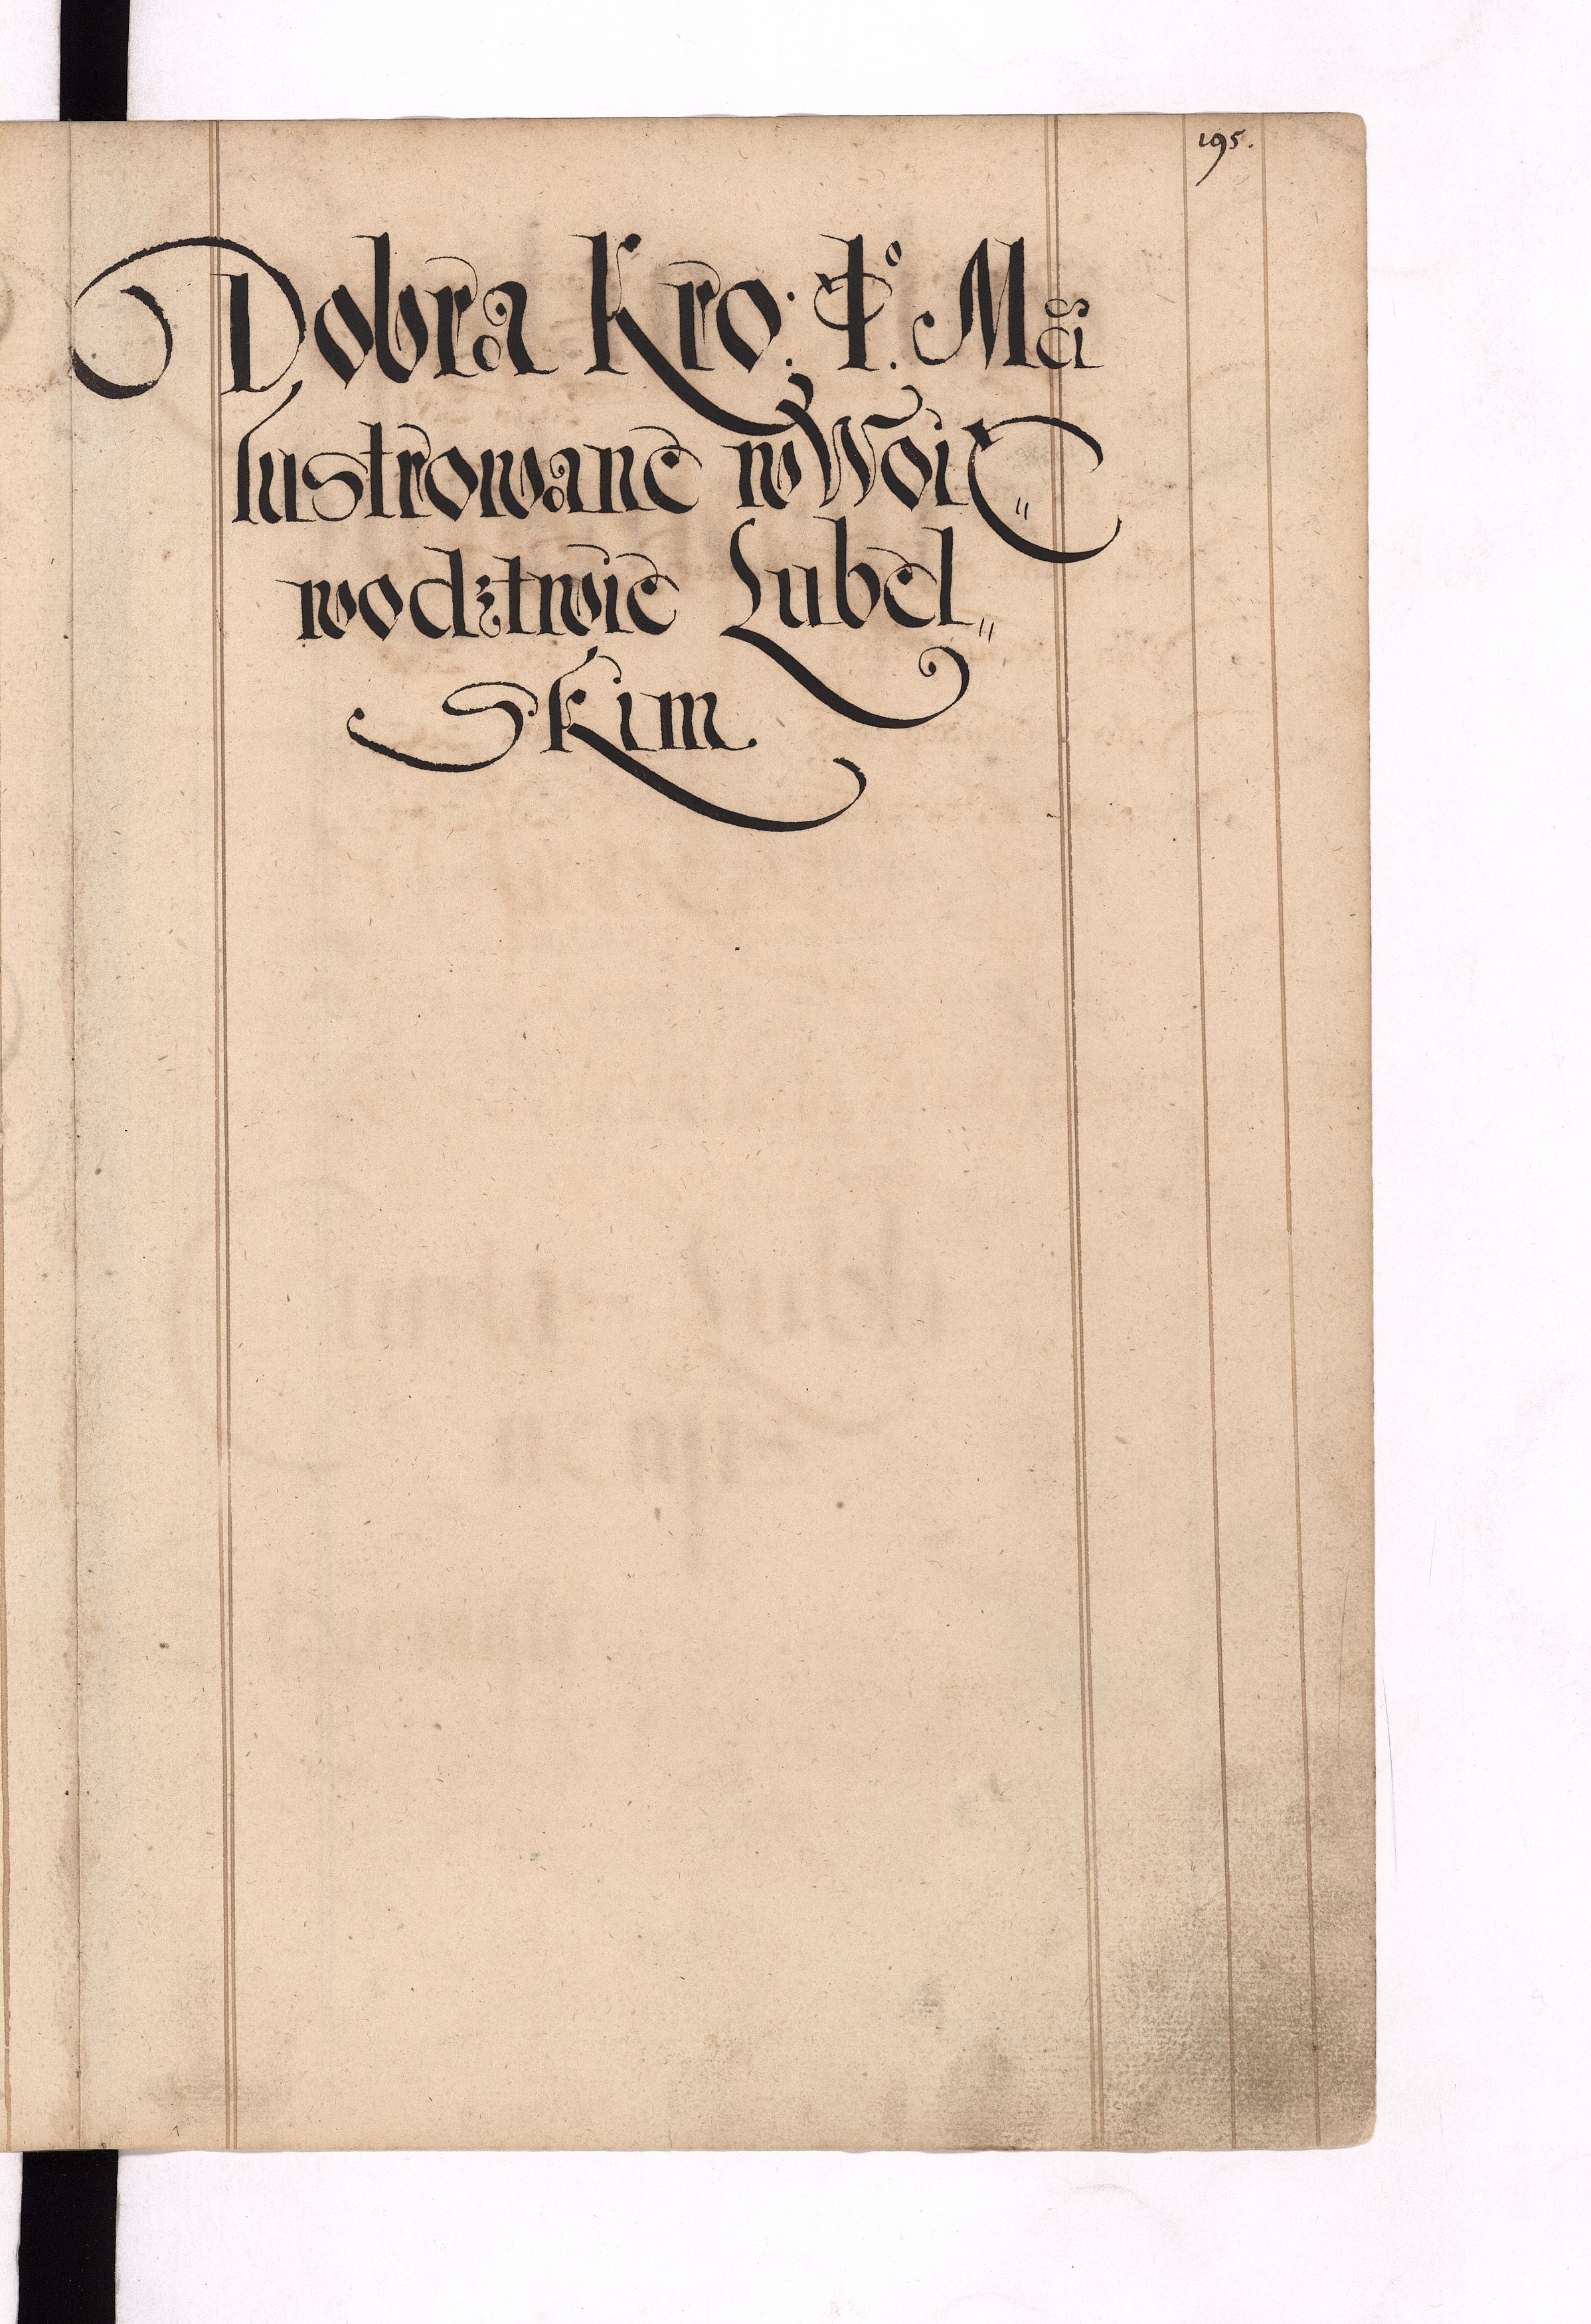 195.
Dobra Kro: J° Mći
lustrowane w Woie„
wodztwie Lubel„
skim